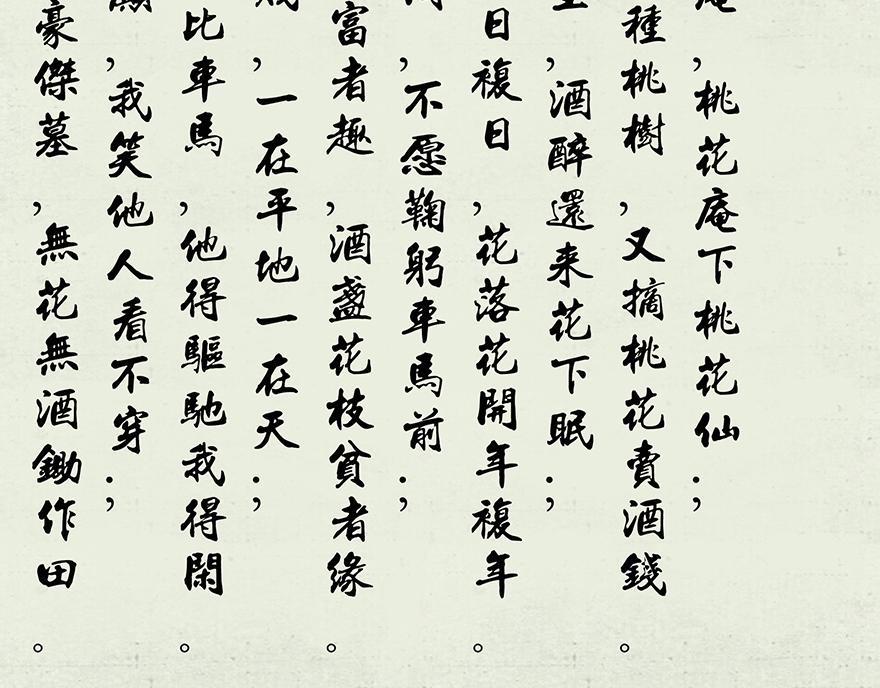 ，桃花庵下桃花仙；
種桃樹，又摘桃花賣酒錢。
，酒醉還来花下眠；
日複日，花落花開年複年。
，不愿鞠躬車馬前；
富者趣，酒盞花枝貧者缘。
，一在平地一在天；
比車馬，他得驅馳我得閑。
，我笑他人看不穿；
豪傑墓，無花無酒鋤作田。